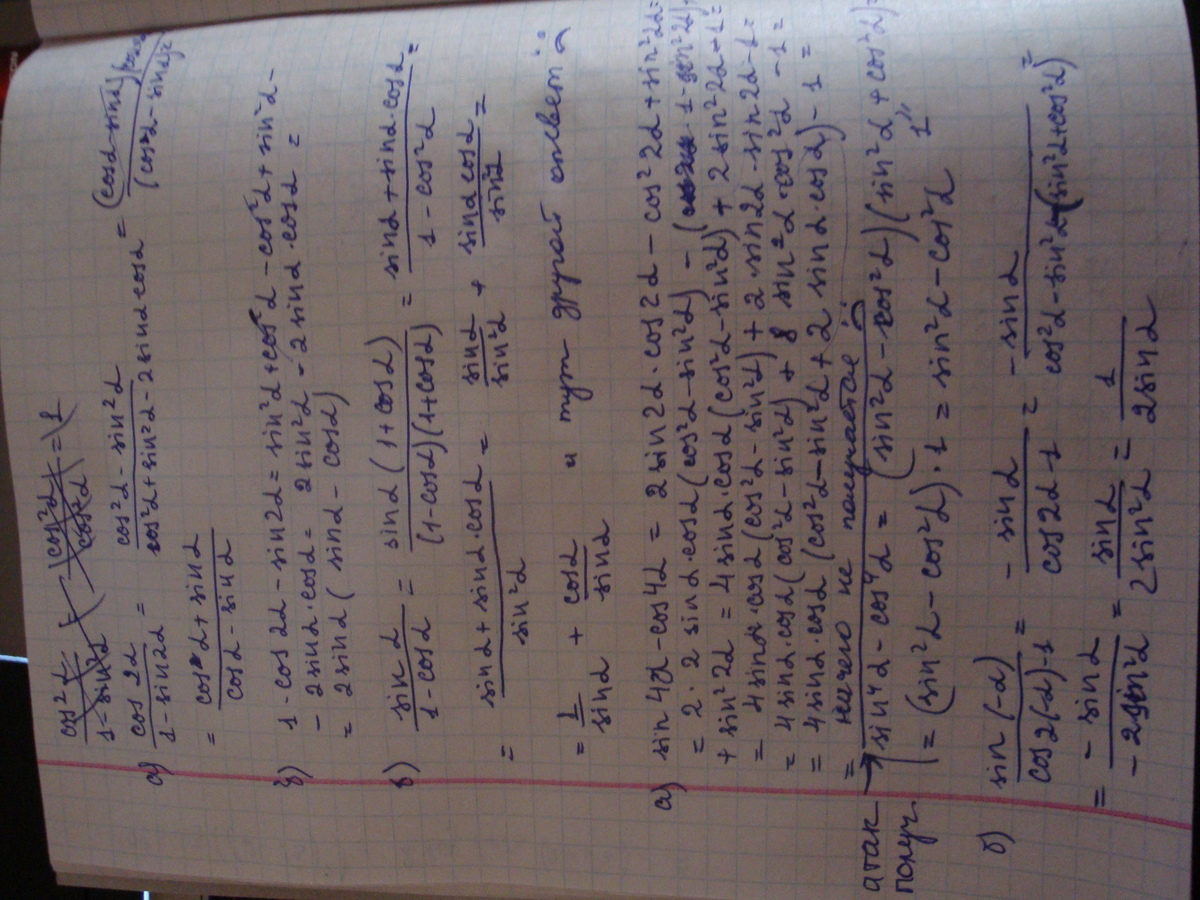 cos² 2 / 1 - sin 2α cos²α / cos²α = 1
а) cos 2α / 1 - sin 2α = cos²α - sin²α / cos²α + sin²α - 2 sinα cosα = (cosα + sinα)(cosα / (cosα - sinα)²
= cosα + sinα / cosα - sinα
б) 1 - cos 2α - sin 2α = sin²α + cos²α - cos²α + sin²α -
- 2 sinα · cosα = 2 sin²α - 2 sinα · cosα =
= 2 sinα ( sinα - cosα)
в) sinα / 1 - cosα = sinα (1 + cosα) / (1 - cosα)(1 + cosα) = sinα + sinα · cosα / 1 - cos²α =
= sinα + sinα · cosα / sin²α = sinα / sin²α + sinα cosα / sin²α =
= 1 / sinα + cosα / sinα и тут другой ответ
а) sin 4α - cos 4α = 2 sin 2α · cos 2α - cos² 2α + sin² 2α =
= 2 · 2 sinα · cosα (cos²α - sin²α) - ( 1 - sin² 2α) +
+ sin² 2α = 4 sinα · cosα (cos²α - sin²α) + 2 sin² 2α - 1 =
= 4 sinα · cosα (cos²α - sin²α) + 2 · sin 2α · sin 2α - 1 =
= 4 sinα · cosα (cos²α - sin²α) + 8 sin²α · cos²α - 1 =
= 4 sinα · cosα (cos²α - sin²α + 2 sinα · cosα) - 1 =
= ничего не получается
а так → sin⁴α - cos⁴α = (sin²α - cos²α)(sin²α + cos²α) =
получ. = (sin²α - cos²α) · 1 = sin²α - cos²α 1
б) sin (-α) / cos 2(-α) - 1 = - sinα / cos 2α - 1 = - sinα / cos²α - sin²α - (sin²α + cos²α) =
= - sinα / - 2 sin²α = sinα / 2 sin²α = 1 / 2 sinα